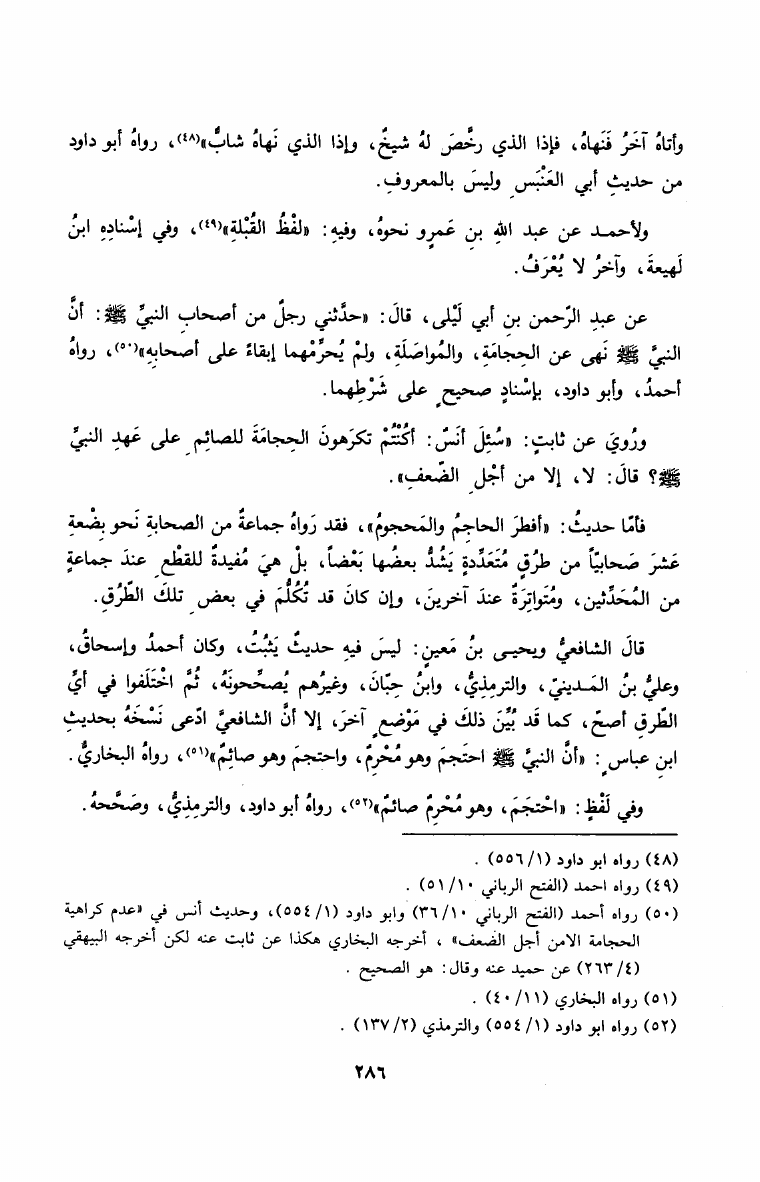 وأتاهُ آخَرُ فَنَهاهُ، فإذا الذي رخَّصَ لهُ شيخٌ، وإذا الذي نَهاهُ شابٌّ»(٤٨)، رواهُ أبو داود
من حديثِ أبي العَنْبَسِ وليسَ بالمعروفِ.
ولأحمـد عن عبد اللهِ بنِ عَمرٍو نحوهُ، وفيهِ: «لفْظُ القُبْلةِ»(٤٩)، وفي إسْنادِهِ ابنُ
لَهيعةَ، وآخرُ لا يُعْرَفُ.
عن عبدِ الرّحمن بنِ أبي لَيْلى، قالَ: «حدَّثني رجلٌ من أصحابِ النبيِّ ﷺ: أنَّ
النبيَّ ﷺ نَهى عن الحِجامَةِ، والمُواصَلَةِ، ولمْ يُحرِّمْهما إبقاءً على أصحابِهِ»(٥٠)، رواهُ
أحمدُ، وأبو داود، بإسْنادٍ صحيحٍ على شَرْطِهما.
ورُويَ عن ثابتٍ: «سُئِلَ أنَسٌ: أكُنْتُمْ تكرَهونَ الحِجامَةَ للصائِمِ على عَهدِ النبيِّ
ﷺ؟ قالَ: لا، إلا من أجْلِ الضّعفِ».
فأمّا حديثُ: «أفطرَ الحاجِمُ والمَحجومُ»، فقد رَواهُ جماعةٌ من الصحابةِ نَحو بِضْعةِ
عَشرَ صَحابيّاً من طرُقٍ مُتَعَدِّدةٍ يَشُدُّ بعضُها بَعْضاً، بلْ هيَ مُفيدةٌ للقطْعِ عندَ جماعةٍ
من المُحَدِّثين، ومُتواتِرَةٌ عندَ آخرينَ، وإن كانَ قد تُكُلِّمَ في بعضِ تلكَ الطّرُقِ.
قالَ الشافعيُّ ويحيـى بنُ مَعينٍ: ليسَ فيهِ حديثٌ يَثبُتُ، وكان أحمدُ وإسحاقُ،
وعليُّ بنُ المَـدينيّ، والترمِذيُّ، وابنُ حِبّانَ، وغيرُهم يُصحِّحونَهُ، ثُمَّ اخْتَلَفوا في أيِّ
الطّرقِ أصحّ، كما قَد بُيِّنَ ذلكَ في مَوْضعٍ آخرَ، إلا أنَّ الشافعيَّ ادّعى نَسْخَهُ بحديثِ
ابنِ عباسٍ: «أنَّ النبيَّ ﷺ احتَجمَ وهو مُحْرِمٌ، واحتجمَ وهو صائِمٌ»(٥١)، رواهُ البخاريُّ.
وفي لَفْظٍ: «احْتجَمَ، وهو مُحْرِمٌ صائمٌ»(٥٢)، رواهُ أبو داود، والترمِذيُّ، وصَحَّحهُ.
(٤٨) رواه ابو داود (١/ ٥٥٦) .
(٤٩) رواه احمد (الفتح الرباني ١٠/ ٥١) .
(٥٠) رواه أحمد (الفتح الرباني ١٠/ ٣٦) وابو داود (١/ ٥٥٤)، وحديث أنس في «عدم كراهية
الحجامة الامن أجل الضعف» ، أخرجه البخاري هكذا عن ثابت عنه لكن أخرجه البيهقي
(٤/ ٢٦٣) عن حميد عنه وقال: هو الصحيح .
(٥١) رواه البخاري (١١/ ٤٠) .
(٥٢) رواه ابو داود (١/ ٥٥٤) والترمذي (٢/ ١٣٧) .
٢٨٦